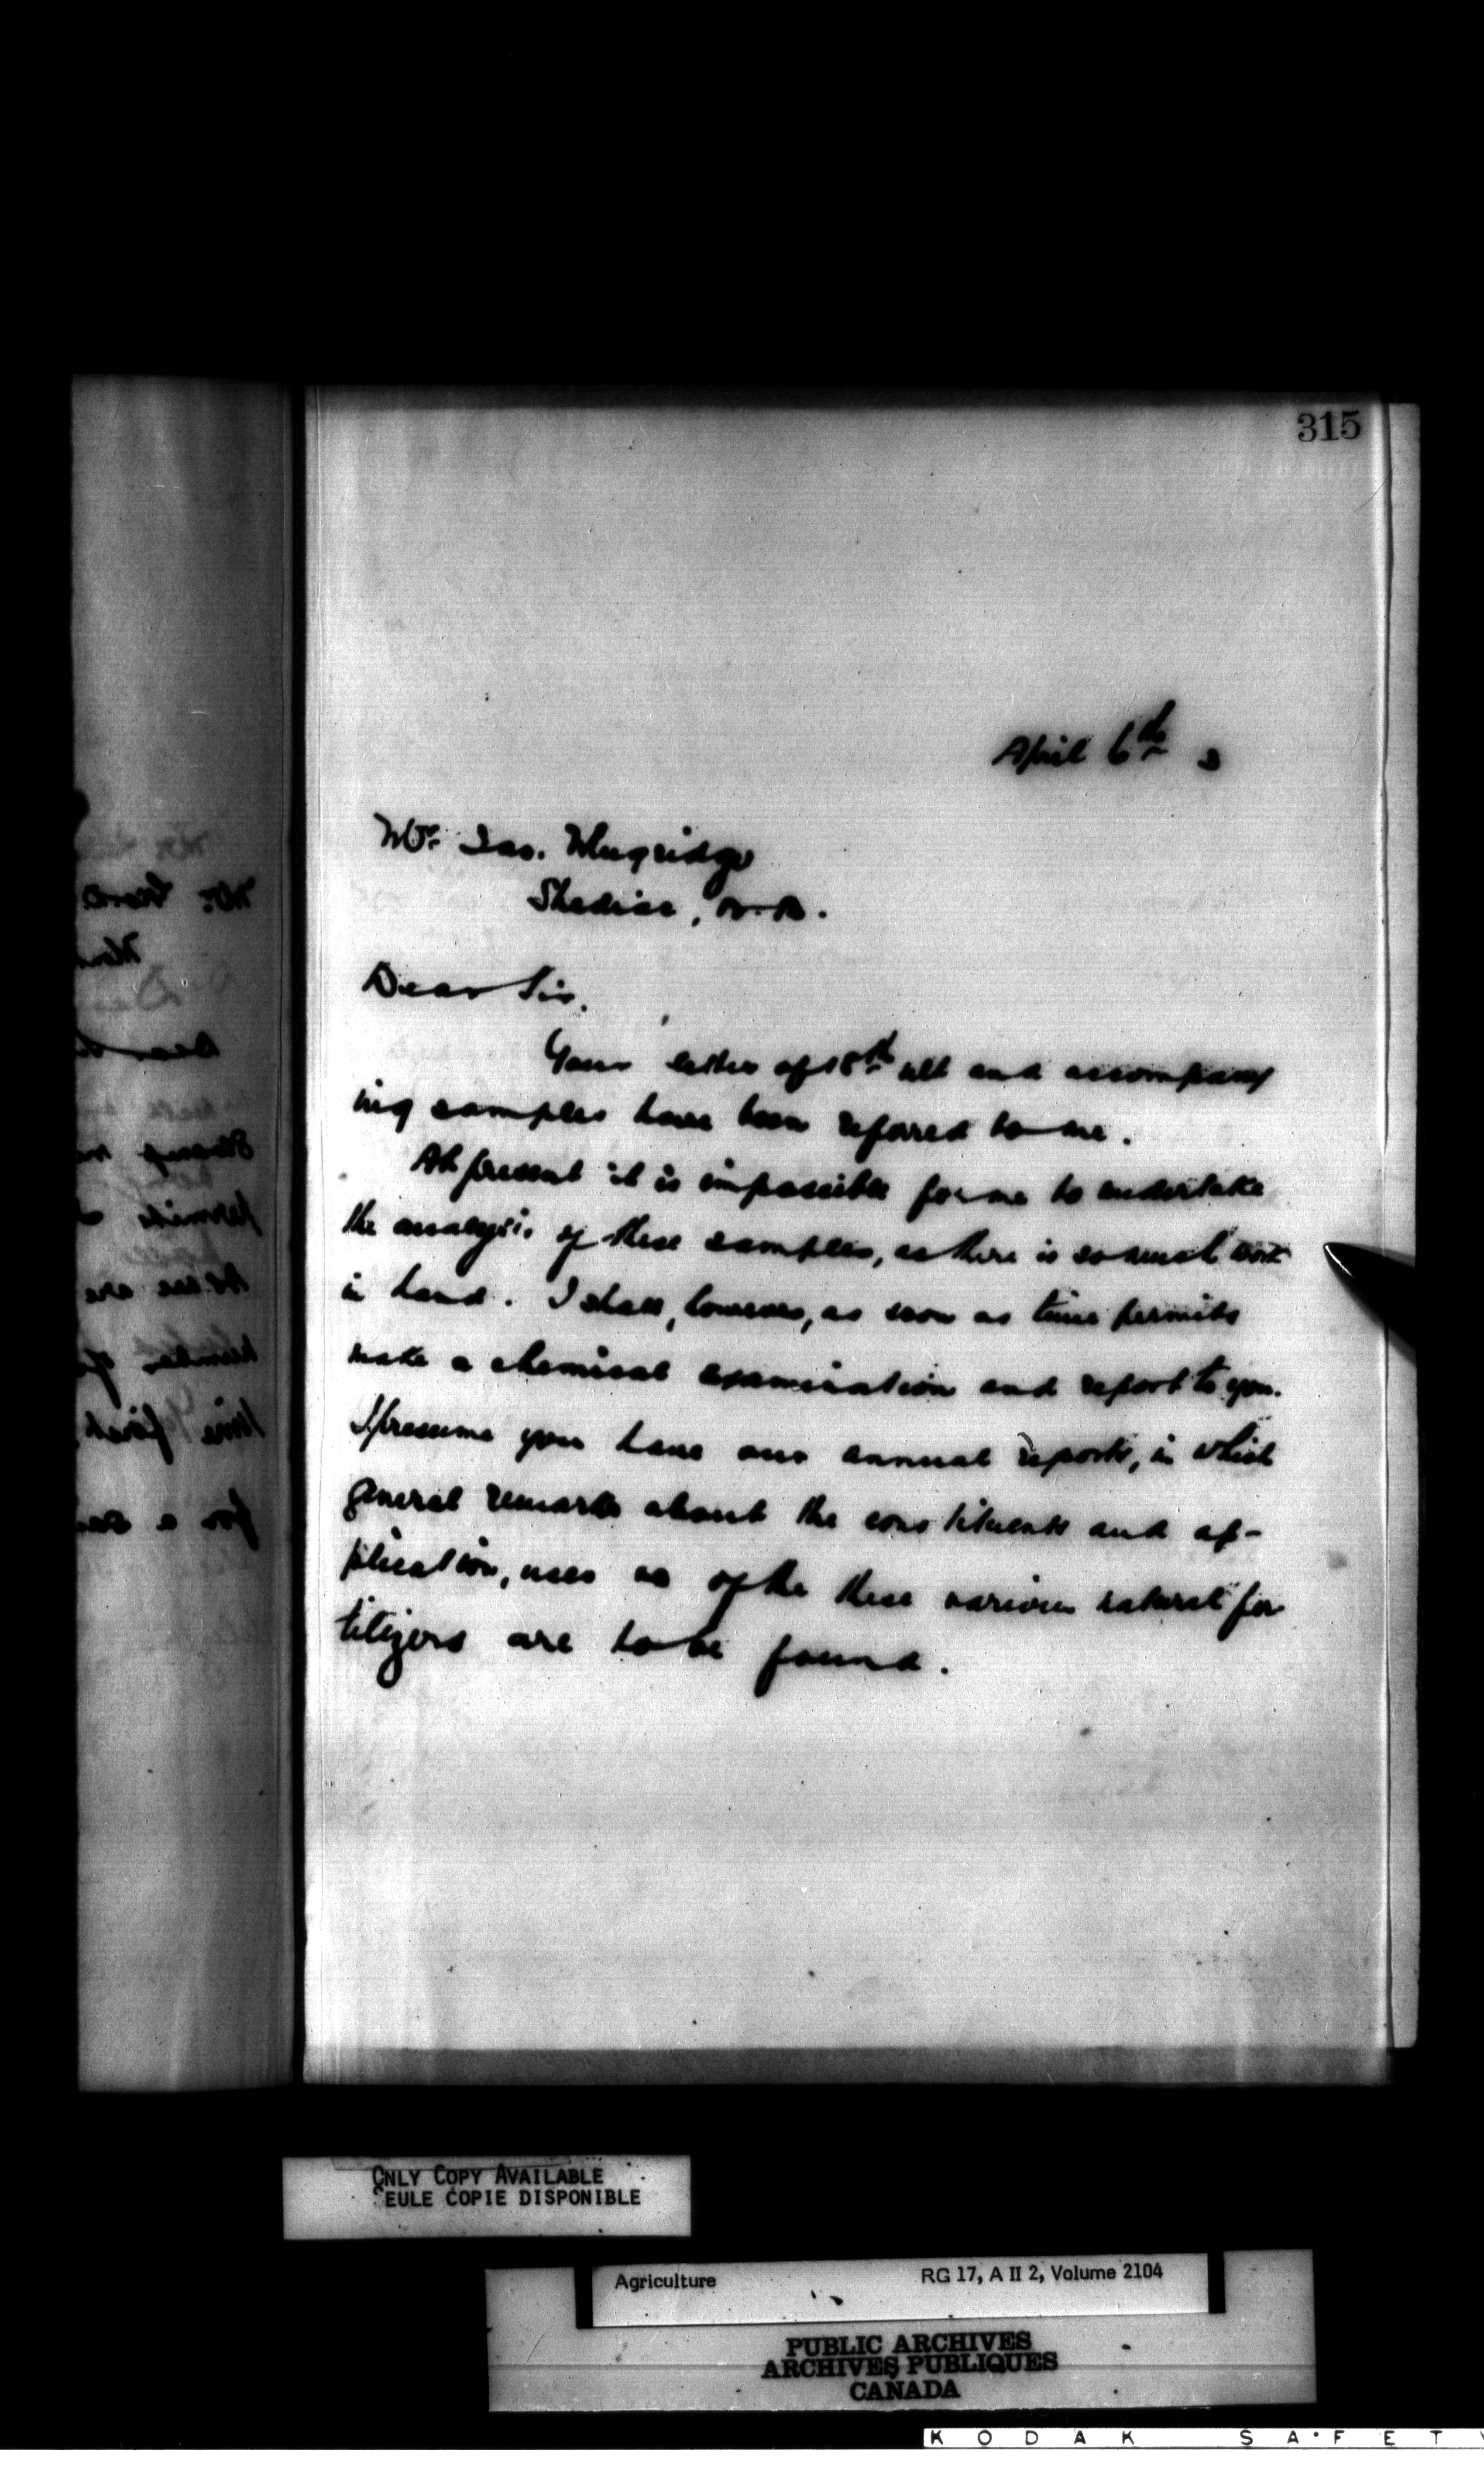 315
April 6th 3
Mr. Jas. Mugridge
Shediac, N.B.
Dear Sir,
Your letter of 18th ult and accompany
ing samples have been referred to me.
At present it is impossible for me to undertake
the analysis of these samples, as there is so much work
in hand. I shall, however, as soon as time permits
make a chemical examination and report to you.
I presume you have our annual reports, in which
general remarks about the constituents and ap-
plication, uses of the these various natural fer
tilizers are to be found.
ONLY COPY AVAILABLE
SEULE COPIE DISPONIBLE
Agriculture RG 17, A II 2, Volume 2104
PUBLIC ARCHIVES
ARCHIVES PUBLIQUES
CANADA
KODAK SAFETY